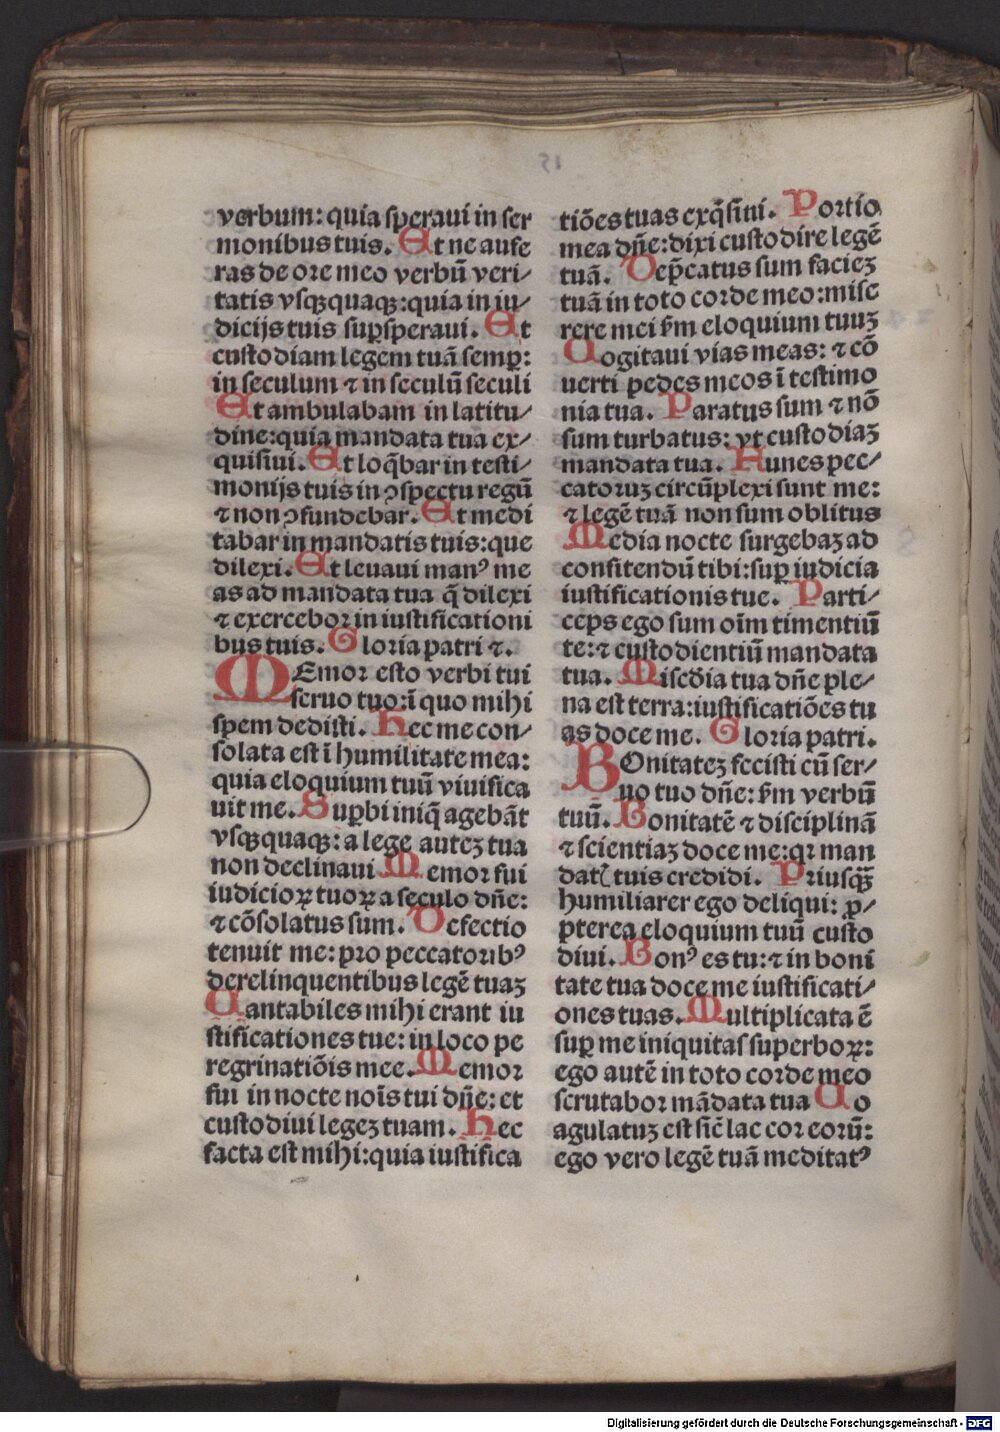 verbum: quia speraui in ser
monibus tuis. Et ne aufe
ras de ore meo verbū veri⸗
tatis vsqꝫquaqꝫ:quia in iu⸗
dicijs tuis suꝑsperaui. Et
custodiam legem tuā semꝑ:
in seculum ⁊ in seculū seculi
Et ambulabam in latitu⸗
dine:quia mandata tua ex⸗
quisiui. Et loq̄bar in testi⸗
monijs tuis in ꝯspectu regū
⁊ non ꝯfundebar. Et medi
tabar in mandatis tuis:que
dilexi. Et leuaui manꝰ me
as ad mandata tua q̄ dilexi
⁊ exercebor in iustificationi
bus tuis. Gloria patri ⁊.
MEmor esto verbi tui
seruo tuo:ī quo mihi
spem dedisti. Hec me con⸗
solata est ī humilitate mea:
quia eloquium tuū viuifica
uit me. Suꝑbi iniq̄ agebāt
vsqꝫquaqꝫ: a lege auteꝫ tua
non declinaui Memor fui
iudicioꝝ tuoꝝ a seculo dn̄e:
⁊ cōsolatus sum. Defectio
tenuit me: pro peccatoribꝰ
derelinquentibus legē tuaꝫ
Cantabiles mihi erant iu
stificationes tue: in loco pe
regrinatiōis mee. Memor
fui in nocte noīs tui dn̄e: et
custodiui legeꝫ tuam. Hec
facta est mihi:quia iustifica
tiōes tuas exq̄siui. Portio
mea dn̄e:dixi custodire legē
tuā. Dep̄catus sum facieꝫ
tuā in toto corde meo:mise
rere mei ẜm eloquium tuuꝫ
Cogitaui vias meas: ⁊ cō
uerti pedes meos ī testimo
nia tua. Paratus sum ⁊ nō
sum turbatus: vt custodiaꝫ
mandata tua. Funes pec⸗
catoruꝫ circūplexi sunt me:
⁊ legē tuā non sum oblitus
Media nocte surgebaꝫ ad
confitendū tibi:suꝑ iudicia
iustificationis tue. Parti⸗
ceps ego sum oīm timentiū
te:⁊ custodientiū mandata
tua. Misc̄dia tua dn̄e ple⸗
na est terra:iustificatiōes tu
as doce me. Gloria patri.
BOnitateꝫ fecisti cū ser⸗
uo tuo dn̄e: ẜm verbū
tuū. Bonitatē ⁊ disciplinā
⁊ scientiaꝫ doce me:qꝛ man
datꝭ tuis credidi. Priusq̄ꝫ
humiliarer ego deliqui: ꝓ⸗
pterea eloquium tuū custo
diui. Bonꝰ es tu:⁊ in boni
tate tua doce me iustificati⸗
ones tuas. Multiplicata ē
suꝑ me iniquitas superboꝝ:
ego autē in toto corde meo
scrutabor mādata tua Co
agulatuꝫ est sic̄ lac cor eorū:
ego vero legē tuā meditatꝰ
Digitalisierung gefördert durch die Deutsche Forschungsgemeinschaft - DFG